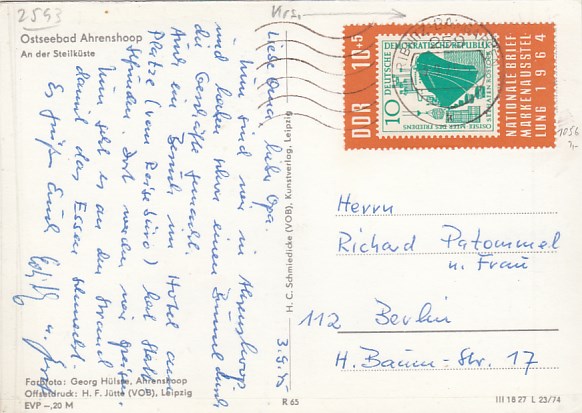 2593
Krs.
Ostseebad Ahrenshoop
An der Steilküste
3.9.75
Liebe Oma, lieber Opa.
Nun sind wir in Ahrenshoop
und haben schon einen Bummel durch
die Geschäfte gemacht.
Auch ein Besuch im Hotel am
Platze (vom Reisebüro) hat statt-
gefunden. Dort werden wir speisen.
Nun geht es an den Strand
damit das Essen schmeckt.
Es grüßen Euch
u.
Farbfoto: Georg Hülsse, Ahrenshoop
Offsetdruck: H. F. Jütte (VOB), Leipzig
EVP –,20 M
R 65
H. C. Schmiedicke (VOB), Kunstverlag, Leipzig
DDR 10+5
DEUTSCHE DEMOKRATISCHE REPUBLIK
10
OSTSEE MEER DES FRIEDENS
NATIONALE BRIEF
MARKENAUSSTEL
LUNG 1964
1056
Herrn
Richard Patommel
u. Frau
112 Berlin
H. Baum-Str. 17
III 18 27 L 23/74